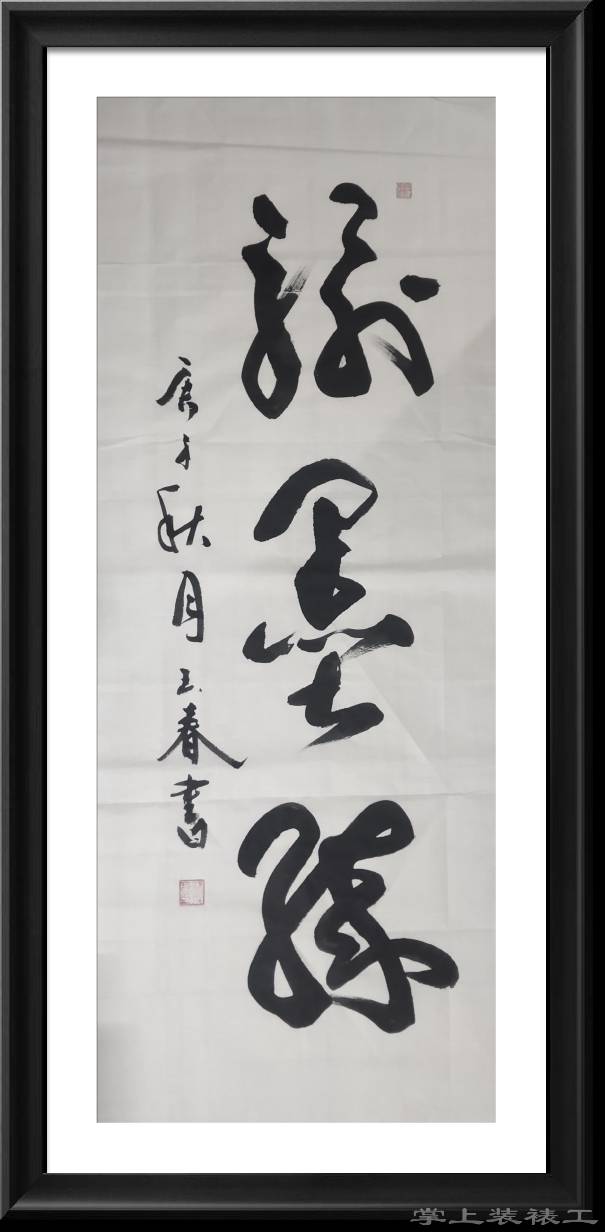 墨緣
庚子秋月玉春書
掌上装裱工